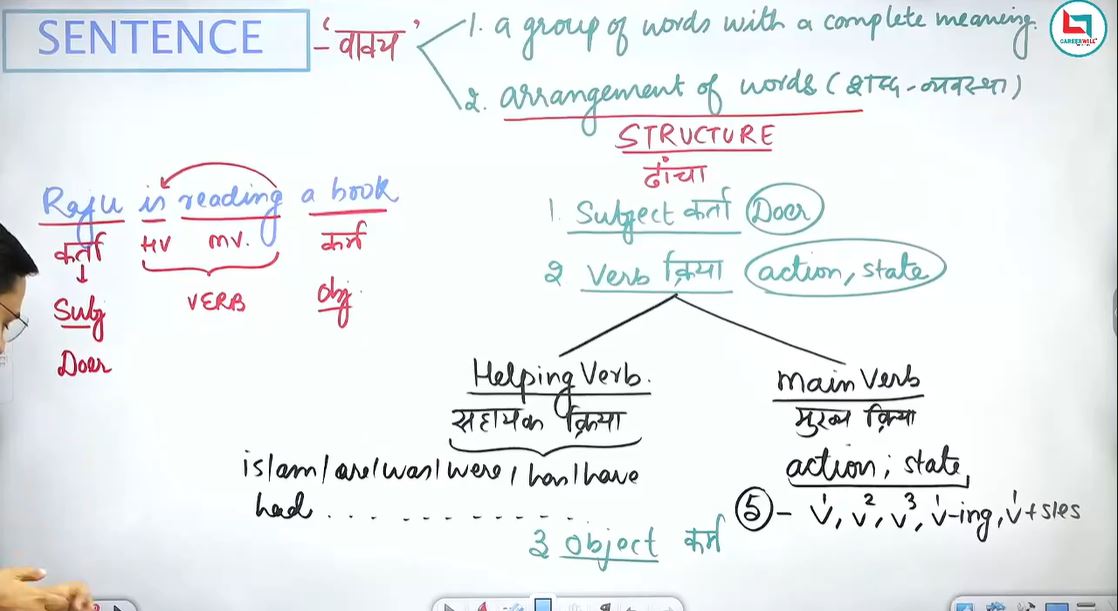 SENTENCE - 'वाक्य'
1. a group of words with a complete meaning.
2. arrangement of words (शब्द-व्यवस्था)
STRUCTURE
ढांचा
CAREERWILL
Raju is reading a book
कर्ता HV MV. कर्म
Subj VERB obj.
Doer
1. Subject कर्ता Doer
2 Verb क्रिया action, state
Helping Verb.
सहायक क्रिया
is/am/are/was/were/has/have
had . . . - - - - - - - . . . .
main Verb
मुख्य क्रिया
action; state,
5 - V¹, V², V³, V¹-ing, V¹+s/es
3 object कर्म